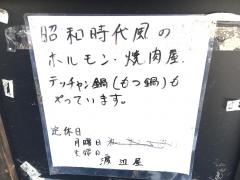 昭和時代風の
ホルモン・焼肉屋.
テッチャン鍋(もつ鍋)も
やっています。
定休日
月曜日
土曜日
渡辺屋